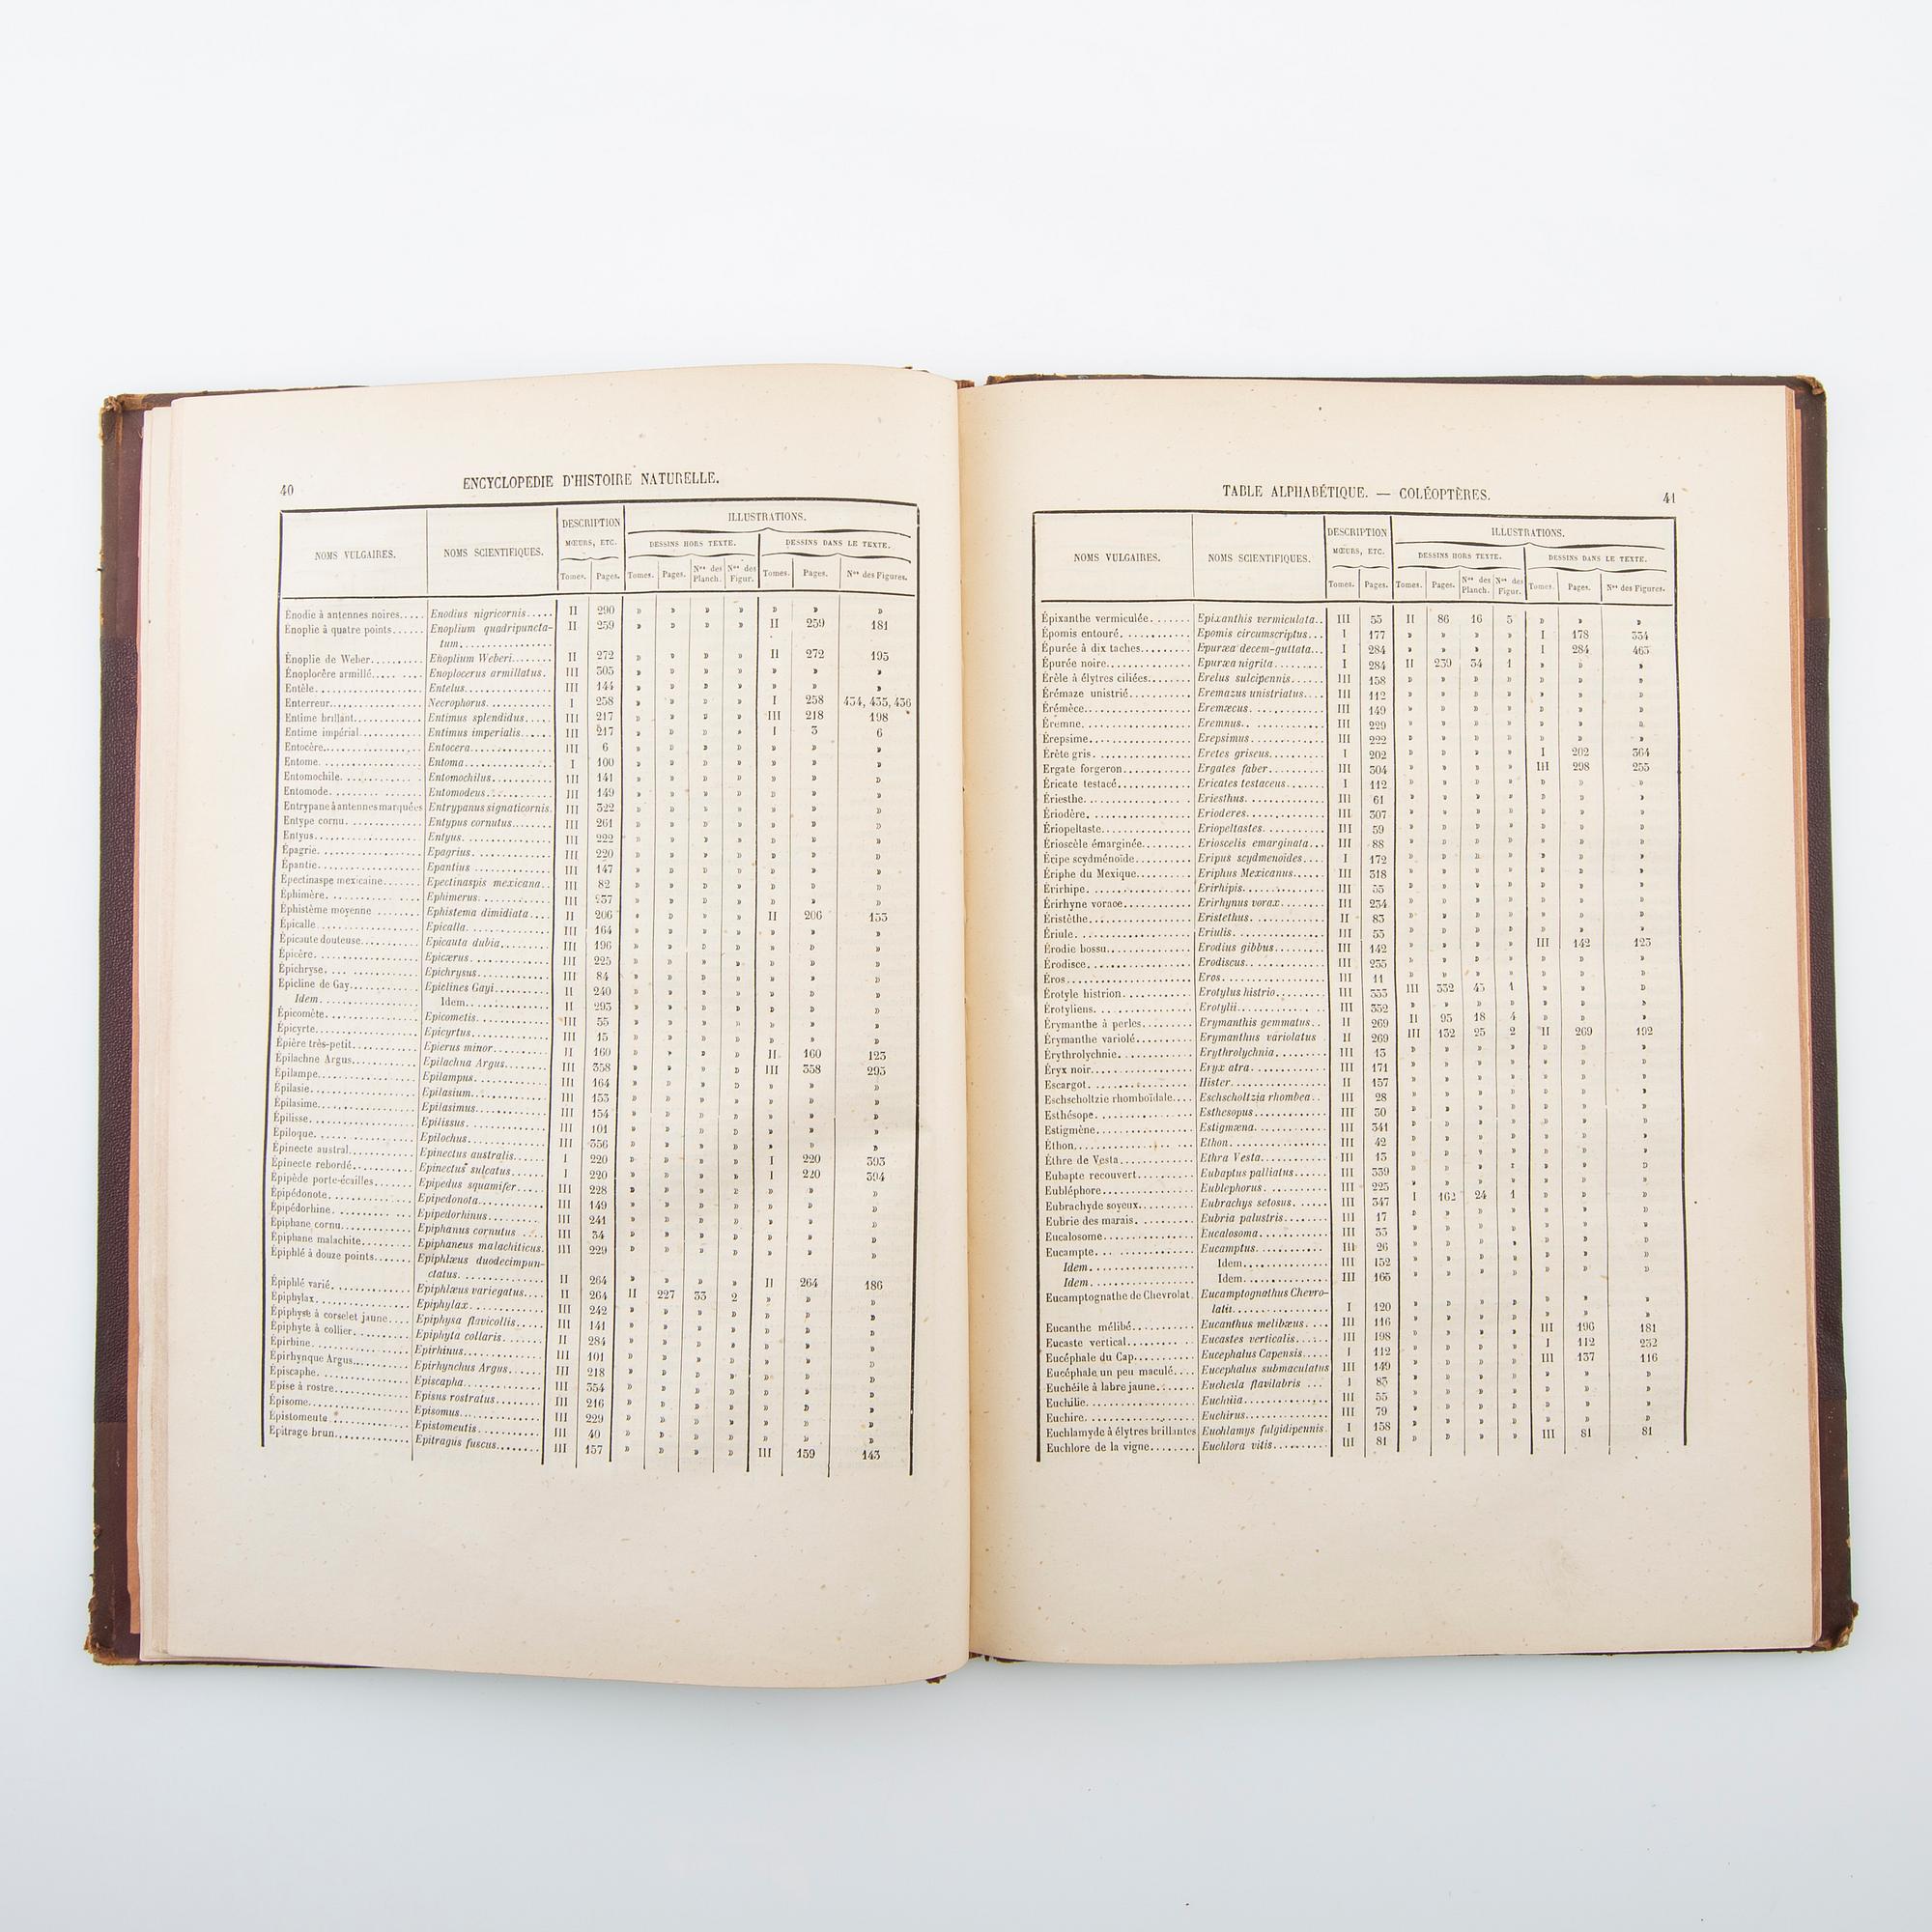 40 ENCYCLOPEDIE D'HISTOIRE NATURELLE.
NOMS VULGAIRES. NOMS SCIENTIFIQUES. DESCRIPTION MŒURS, ETC. ILLUSTRATIONS.
DESSINS HORS TEXTE. DESSINS DANS LE TEXTE.
Tomes. Pages. Tomes. Pages. Nos des Planch. Nos des Figur. Tomes. Pages. Nos des Figures.
Énodie à antennes noires..... Enodius nigricornis..... II 290 » » » » » » »
Énoplie à quatre points...... Enoplium quadripuncta-
tum................ II 259 » » » » II 259 181
Énoplie de Weber.......... Enoplium Weberi........ II 272 » » » » II 272 195
Énoplocère armillé......... Enoplocerus armillatus. III 305 » » » » » » »
Entèle.................... Entelus............... III 144 » » » » » » »
Enterreur................. Necrophorus........... I 258 » » » » I 258 434, 435, 436
Entime brillant............ Entimus splendidus..... III 217 » » » » III 218 198
Entime impérial............ Entimus imperialis..... III 217 » » » » I 3 6
Entocère.................. Entocera.............. III 6 » » » » » » »
Entome................... Entoma............... I 100 » » » » » » »
Entomochile............... Entomochilus.......... III 141 » » » » » » »
Entomode................. Entomodeus........... III 149 » » » » » » »
Entrypane à antennes marquées Entrypanus signaticornis. III 322 » » » » » » »
Entype cornu.............. Entypus cornutus....... III 261 » » » » » » »
Entyus................... Entyus............... III 222 » » » » » » »
Épagrie.................. Epagrius.............. III 220 » » » » » » »
Épantie................... Epantius.............. III 147 » » » » » » »
Épectinaspe mexicaine....... Epectinaspis mexicana.. III 82 » » » » » » »
Éphimère................. Ephimerus............. III 237 » » » » » » »
Éphistème moyenne ........ Ephistema dimidiata.... II 206 » » » » II 206 153
Épicalle.................. Epicalla.............. III 164 » » » » » » »
Épicaute douteuse.......... Epicauta dubia......... III 196 » » » » » » »
Épicère................... Epicærus.............. III 225 » » » » » » »
Épichryse................. Epichrysus............ III 84 » » » » » » »
Épicline de Gay............ Epiclines Gayi......... II 240 » » » » » » »
Idem................. Idem............... II 293 » » » » » » »
Épicomète................ Epicometis............ III 55 » » » » » » »
Épicyrte.................. Epicyrtus............. III 15 » » » » » » »
Épière très-petit............ Epierus minor.......... II 160 » » » » II 160 123
Épilachne Argus........... Epilachna Argus........ III 358 » » » » III 358 293
Épilampe................. Epilampus............ III 164 » » » » » » »
Épilasie.................. Epilasium............. III 153 » » » » » » »
Épilasime................. Epilasimus............ III 154 » » » » » » »
Épilisse.................. Epilissus.............. III 101 » » » » » » »
Épiloque.................. Epilochus............. III 336 » » » » » » »
Épinecte austral............ Epinectus australis...... I 220 » » » » I 220 393
Épinecte rebordé........... Epinectus sulcatus...... I 220 » » » » I 220 394
Épipède porte-écailles....... Epipedus squamifer..... III 228 » » » » » » »
Épipédonote............... Epipedonota........... III 149 » » » » » » »
Épipédorhine.............. Epipedorhinus.......... III 241 » » » » » » »
Épiphane cornu............ Epiphanus cornutus .... III 34 » » » » » » »
Épiphane malachite......... Epiphaneus malachiticus. III 229 » » » » » » »
Épiphlé à douze points...... Epiphlæus duodecimpun-
ctatus............... II 264 » » » » II 264 186
Épiphlé varié.............. Epiphlæus variegatus.... II 264 II 227 33 2 » » »
Épiphylax................. Epiphylax............. III 242 » » » » » » »
Épiphyse à corselet jaune.... Epiphysa flavicollis..... III 141 » » » » » » »
Épiphyte à collier.......... Epiphyta collaris....... II 284 » » » » » » »
Épirhine.................. Epirhinus............. III 101 » » » » » » »
Épirhynque Argus.......... Epirhynchus Argus...... III 218 » » » » » » »
Épiscaphe................. Episcapha............. III 354 » » » » » » »
Épise à rostre............. Episus rostratus........ III 216 » » » » » » »
Épisome.................. Episomus............. III 229 » » » » » » »
Épistomeute .............. Epistomeutis........... III 40 » » » » » » »
Épitrage brun.............. Epitragus fuscus........ III 157 » » » » III 159 143
TABLE ALPHABÉTIQUE. — COLÉOPTÈRES. 41
NOMS VULGAIRES. NOMS SCIENTIFIQUES. DESCRIPTION MŒURS, ETC. ILLUSTRATIONS.
DESSINS HORS TEXTE. DESSINS DANS LE TEXTE.
Tomes. Pages. Tomes. Pages. Nos des Planch. Nos des Figur. Tomes. Pages. Nos des Figures.
Épixanthe vermiculée....... Epixanthis vermiculata.. III 55 II 86 16 5 » » »
Épomis entouré............ Epomis circumscriptus... I 177 » » » » I 178 334
Épurée à dix taches......... Epuræa decem-guttata... I 284 » » » » I 284 463
Épurée noire............... Epuræa nigrita......... I 284 II 239 34 1 » » »
Érèle à élytres ciliées........ Erelus sulcipennis....... III 158 » » » » » » »
Érémaze unistrié........... Eremazus unistriatus.... III 112 » » » » » » »
Érémèce.................. Eremæcus............. III 149 » » » » » » »
Éremne.................. Eremnus.............. III 229 » » » » » » »
Érepsime................. Erepsimus............ III 222 » » » » » » »
Érète gris................. Eretes griseus.......... I 202 » » » » I 202 364
Ergate forgeron............ Ergates faber.......... III 304 » » » » III 298 255
Éricate testacé............. Ericates testaceus...... I 112 » » » » » » »
Ériesthe.................. Eriesthus............. III 61 » » » » » » »
Ériodère.................. Erioderes............. III 307 » » » » » » »
Ériopeltaste............... Eriopeltastes........... III 59 » » » » » » »
Érioscèle émarginée......... Erioscelis emarginata... III 88 » » » » » » »
Éripe scydménoïde.......... Eripus scydmenoides.... I 172 » » » » » » »
Ériphe du Mexique.......... Eriphus Mexicanus..... III 318 » » » » » » »
Érirhipe.................. Erirhipis.............. III 55 » » » » » » »
Érirhyne vorace............ Erirhynus vorax........ III 234 » » » » » » »
Éristèthe.................. Eristethus............. II 83 » » » » » » »
Ériule.................... Eriulis............... III 55 » » » » » » »
Érodie bossu.............. Erodius gibbus......... III 142 » » » » III 142 123
Érodisce.................. Erodiscus............. III 235 » » » » » » »
Éros..................... Eros................. III 11 » » » » » » »
Érotyle histrion............ Erotylus histrio......... III 353 III 352 43 1 » » »
Érotyliens................. Erotylii............... III 352 » » » » » » »
Érymanthe à perles......... Erymanthis gemmatus.. II 269 II 95 18 4 » » »
Érymanthe variolé.......... Erymanthus variolatus II 269 III 132 25 2 II 269 192
Érythrolychnie............. Erythrolychnia......... III 13 » » » » » » »
Éryx noir................. Eryx atra............. III 171 » » » » » » »
Escargot.................. Hister................ II 157 » » » » » » »
Eschscholtzie rhomboïdale.... Eschscholtzia rhombea.. III 28 » » » » » » »
Esthésope................. Esthesopus............ III 30 » » » » » » »
Estigmène................. Estigmæna............ III 341 » » » » » » »
Éthon.................... Ethon................ III 42 » » » » » » »
Éthre de Vesta............. Ethra Vesta........... III 13 » » » » » » »
Eubapte recouvert.......... Eubaptus palliatus...... III 339 » » » » » » »
Eubléphore................ Eublephorus........... III 225 » » » » » » »
Eubrachyde soyeux......... Eubrachys setosus...... III 347 I 162 24 1 » » »
Eubrie des marais.......... Eubria palustris........ III 17 » » » » » » »
Eucalosome............... Eucalosoma........... III 33 » » » » » » »
Eucampte................. Eucamptus............ III 26 » » » » » » »
Idem................. Idem............... III 152 » » » » » » »
Idem................. Idem............... III 165 » » » » » » »
Eucamptognathe de Chevrolat. Eucamptognathus Chevro-
latii................ I 120 » » » » » » »
Eucanthe mélibé........... Eucanthus melibœus.... III 116 » » » » III 196 181
Eucaste vertical............ Eucastes verticalis...... III 198 » » » » I 112 232
Eucéphale du Cap.......... Eucephalus Capensis..... I 112 » » » » III 137 116
Eucéphale un peu maculé.... Eucephalus submaculatus III 149 » » » » » » »
Euchéile à labre jaune....... Eucheila flavilabris .... I 83 » » » » » » »
Euchilie.................. III 55 » » » » » » »
Euchire.................. Euchirus.............. III 79 » » » » » » »
Euchlamyde à élytres brillantes Euchlamys fulgidipennis. I 158 » » » » III 81 81
Euchlore de la vigne........ Euchlora vitis.......... III 81 » » » »